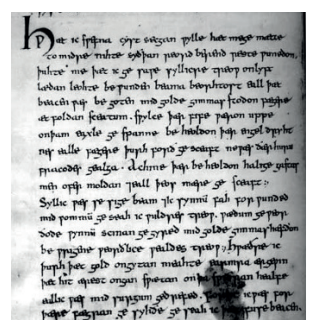 HǷæt ic swefna cyst secgan wylle hæt mege mætte
to midre nihte syðþan reord berend reste wunedon.
þuhte me þæt ic ge sawe syllicre treow onlyft
lædan leohte be wunden beama beorhtost eall þæt
beacen wæs be goten mid golde gimmas stodon fægere
æt foldan sceatum. swylce þær fife wæron uppe
onþam eaxle ge spanne be heoldon þær engel dryht
nes ealle fægere þurh forð ge sceaft ne wæs ðær huru
fracodes gealga. Ac hine þær be heoldon halige gastas
men ofer moldan ⁊eall þeos mære ge sceaft:
Syllic wæs se sige beam ⁊ic synnum fah for wunded
mid wommum ge seah ic wuldres treow. wædum ge weor
ðode wynnum scinan ge gyred mid golde gimmas hæfdon
be wrigene weorðlice wealdes treow. hwæðre ic
þurh þæt gold ongytan meahte earmra ærgewin
þæt hit ærest ongan swætan on þa swiðran healfe
eall ic wæs mid surgum gedrefed. forht ic wæs for
þære fægran ge syhðe ge seah ic þæt fuse beacen.